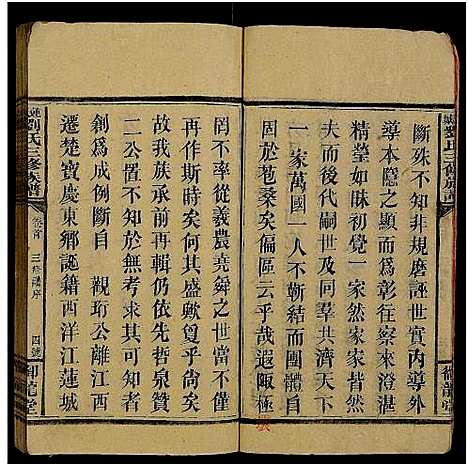 斷殊不知非規磨誣世實內導外
導本隱之顯而爲彰往察來澄湛
精瑩如昧初覺一家家家皆然
夫而後代嗣世世共濟天下
一家萬國一人不靳結而團體自
固於苞桑矣偏區云乎哉遐陬極
罔不率從羲農堯舜之世當不僅
再作斯時矣何其盛歟夐乎尚矣
我族承前再修仍依先哲泉贊
二公置不敢於無考求其可
創爲成例斷自 觀珩公離江西
遷楚寶慶東鄉誕籍西洋江蓮城
劉氏三修族譜
卷首 三修譜序 四號
御龍堂